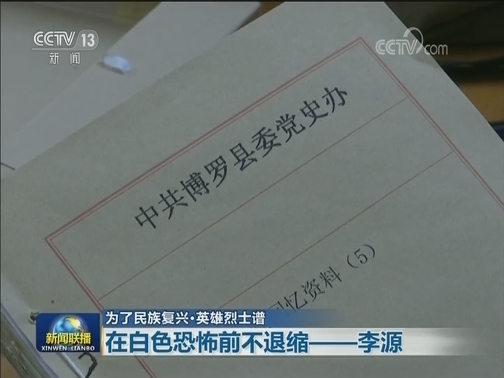 CCTV 13
新闻
CCTV.com
中共博罗县委党史办
忆资料（5）
为了民族复兴·英雄烈士谱
新闻联播
XINWEN LIANBO
在白色恐怖前不退缩——李源